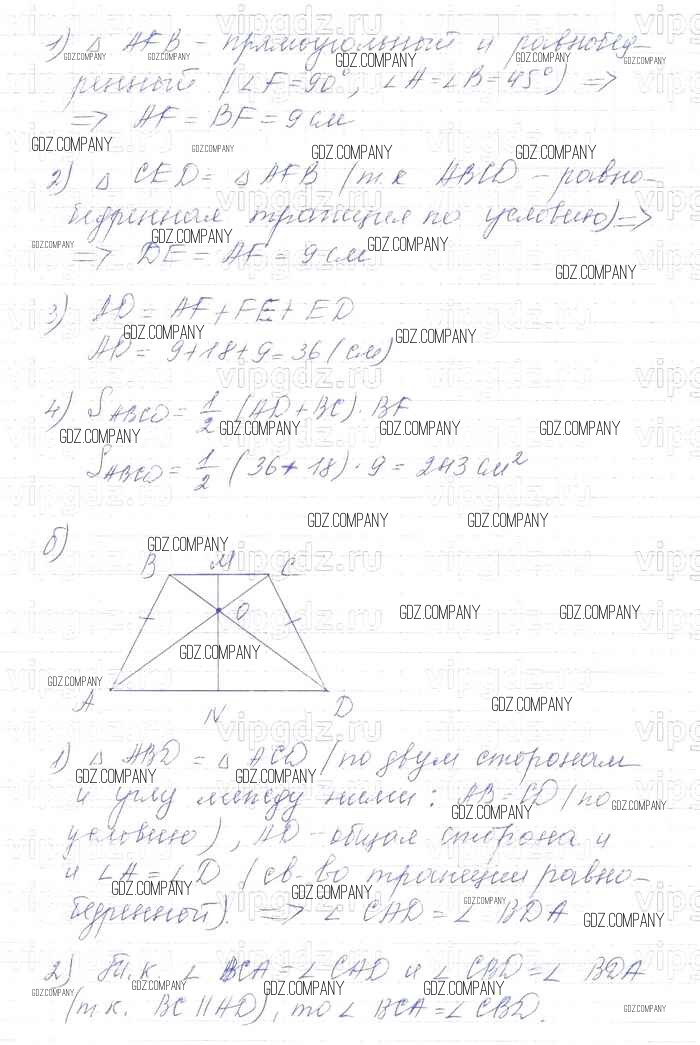 1) △ AFB - прямоугольный и равнобед-
ренный (∠F = 90°, ∠A = ∠B = 45°) =>
=> AF = BF = 9 см
2) △ CED = △ AFB (т.к. ABCD - равно-
бедренная трапеция по условию) =>
=> DE = AF = 9 см
3) AD = AF + FE + ED
AD = 9 + 18 + 9 = 36 (см)
4) S ABCD = 1/2 (AD + BC) · BF
S ABCD = 1/2 (36 + 18) · 9 = 243 см²
б)
B M C
O
A N D
1) △ ABD = △ ACD (по двум сторонам
и углу между ними: AB = CD (по
условию), AD - общая сторона и
и ∠A = ∠D (св-во трапеции равно-
бедренной). => ∠CAD = ∠BDA
2) Т.к. ∠BCA = ∠CAD и ∠CBD = ∠BDA
(т.к. BC || AD), то ∠BCA = ∠CBD.
GDZ.COMPANY
vipgdz.ru